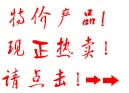 特价产品！
现正热卖！
请点击！➡➡